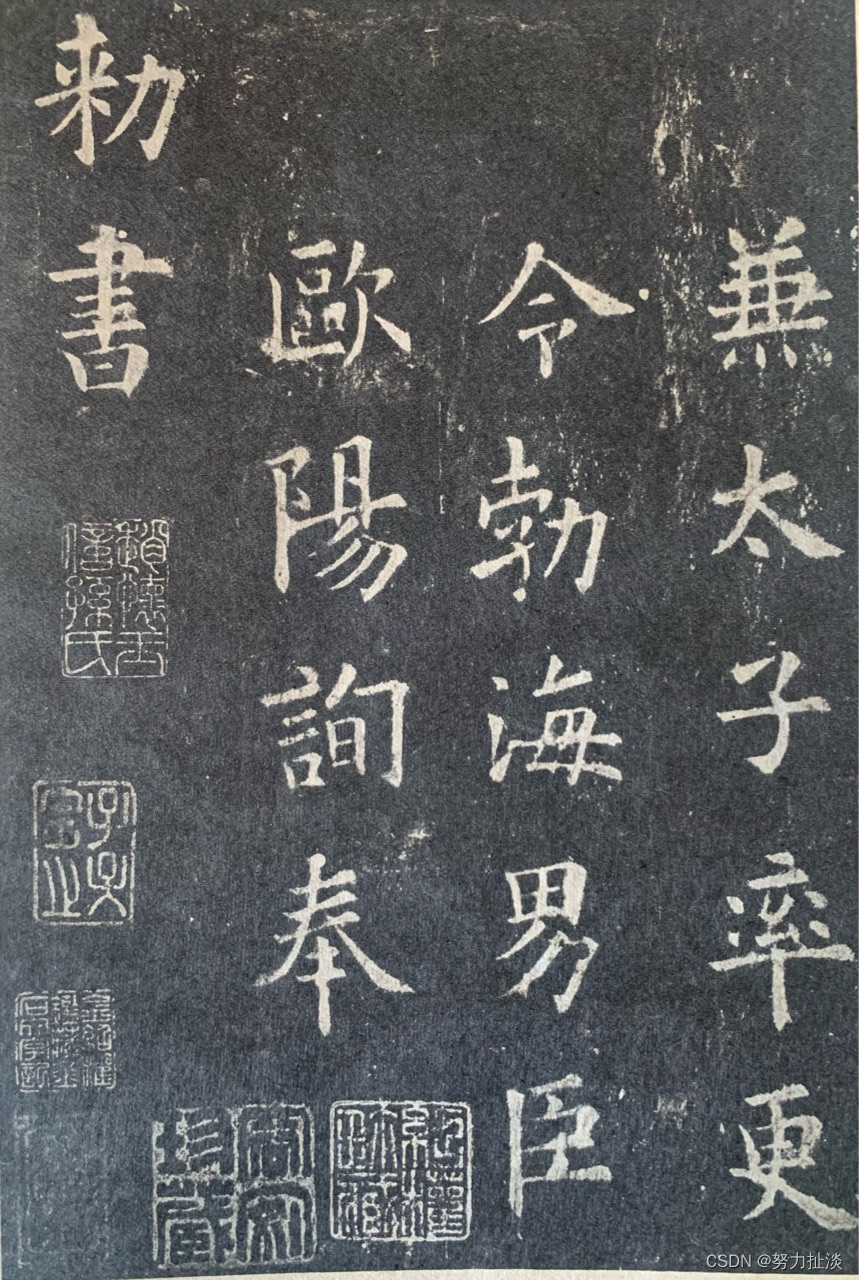 兼太子率更
令勃海男臣
歐陽詢奉
勑書
CSDN @努力扯淡